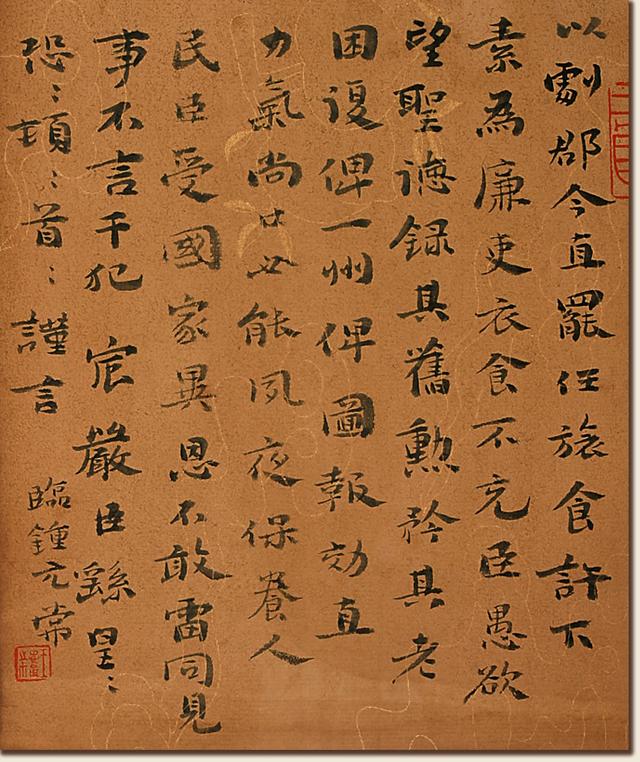 以劇郡今直罷任旅食許下
素為廉吏衣食不充臣愚欲
望聖德錄其舊勳矜其老
困復俾一州俾圖報効直
力氣尚口必能夙夜保養人
民臣受國家異恩不敢雷同見
事不言干犯宸嚴臣繇皇〻
恐〻頓〻首〻謹言
臨鍾元常